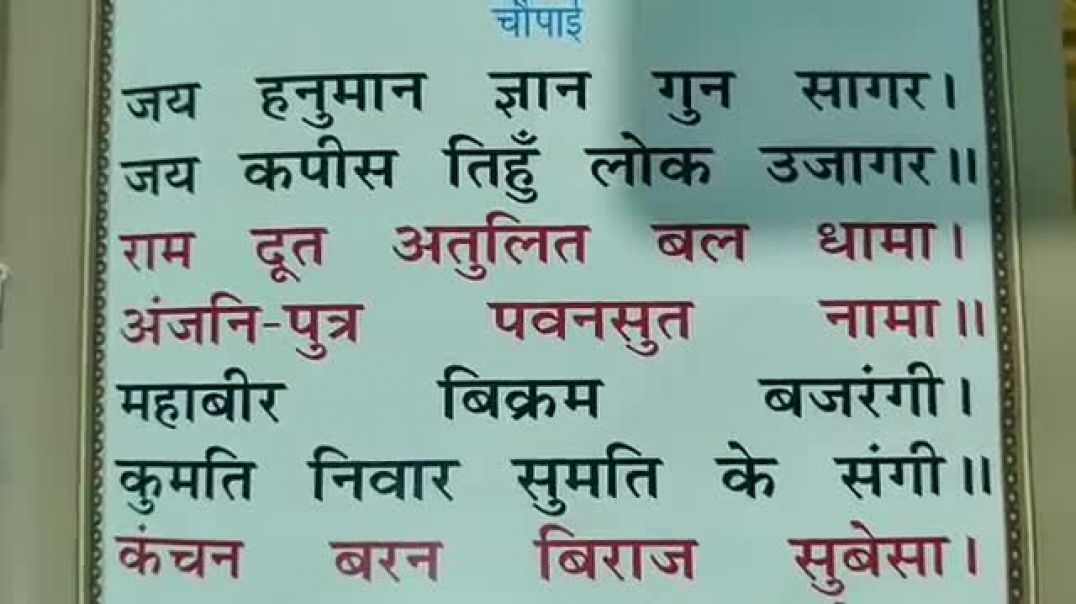 चौपाई
जय हनुमान ज्ञान गुन सागर।
जय कपीस तिहुँ लोक उजागर॥
राम दूत अतुलित बल धामा।
अंजनि-पुत्र पवनसुत नामा॥
महाबीर बिक्रम बजरंगी।
कुमति निवार सुमति के संगी॥
कंचन बरन बिराज सुबेसा।